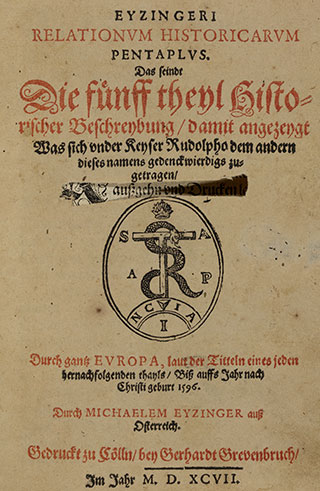 EYZINGERI
RELATIONVM HISTORICARVM
PENTAPLVS.
Das seindt
Die fünff theyl Histo-
rischer Beschreybung / damit angezeygt
Was sich vnder Keyser Rudolpho dem andern
dieses namens gedenckwierdigs zu-
getragen /
außgehn vnd Drucken
S A
A P
NCVIA
I
Durch gantz EVROPA, laut der Titteln eines jeden
hernachfolgenden thayls / Biß auffs Jahr nach
Christi geburt 1596.
Durch MICHAELEM EYZINGER auß
Osterreich.
Gedruckt zu Cölln / bey Gerhardt Grevenbruch /
Im Jahr M. D. XCVII.